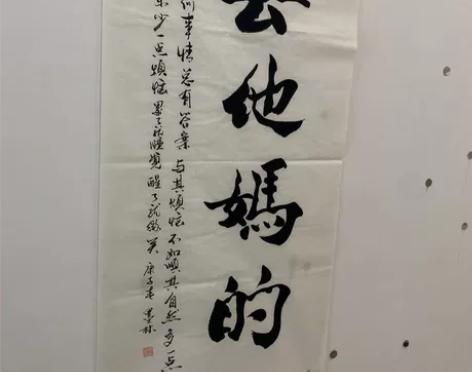 去他媽的
何事情总有答案 与其烦恼 不如顺其自然 多一点
乐少一点烦恼 累了就睡觉 醒了就微笑 庚子春